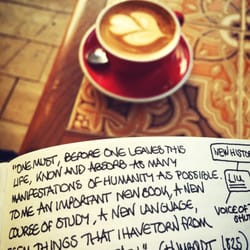 "ONE MUST, BEFORE ONE LEAVES THIS
LIFE, KNOW AND ABSORB AS MANY
MANIFESTATIONS OF HUMANITY AS POSSIBLE.
TO ME AN IMPORTANT NEW BOOK, A NEW
COURSE OF STUDY, A NEW LANGUAGE,
THINGS THAT I HAVE TORN FROM
NEW HISTORY
LILL
VOICE OF